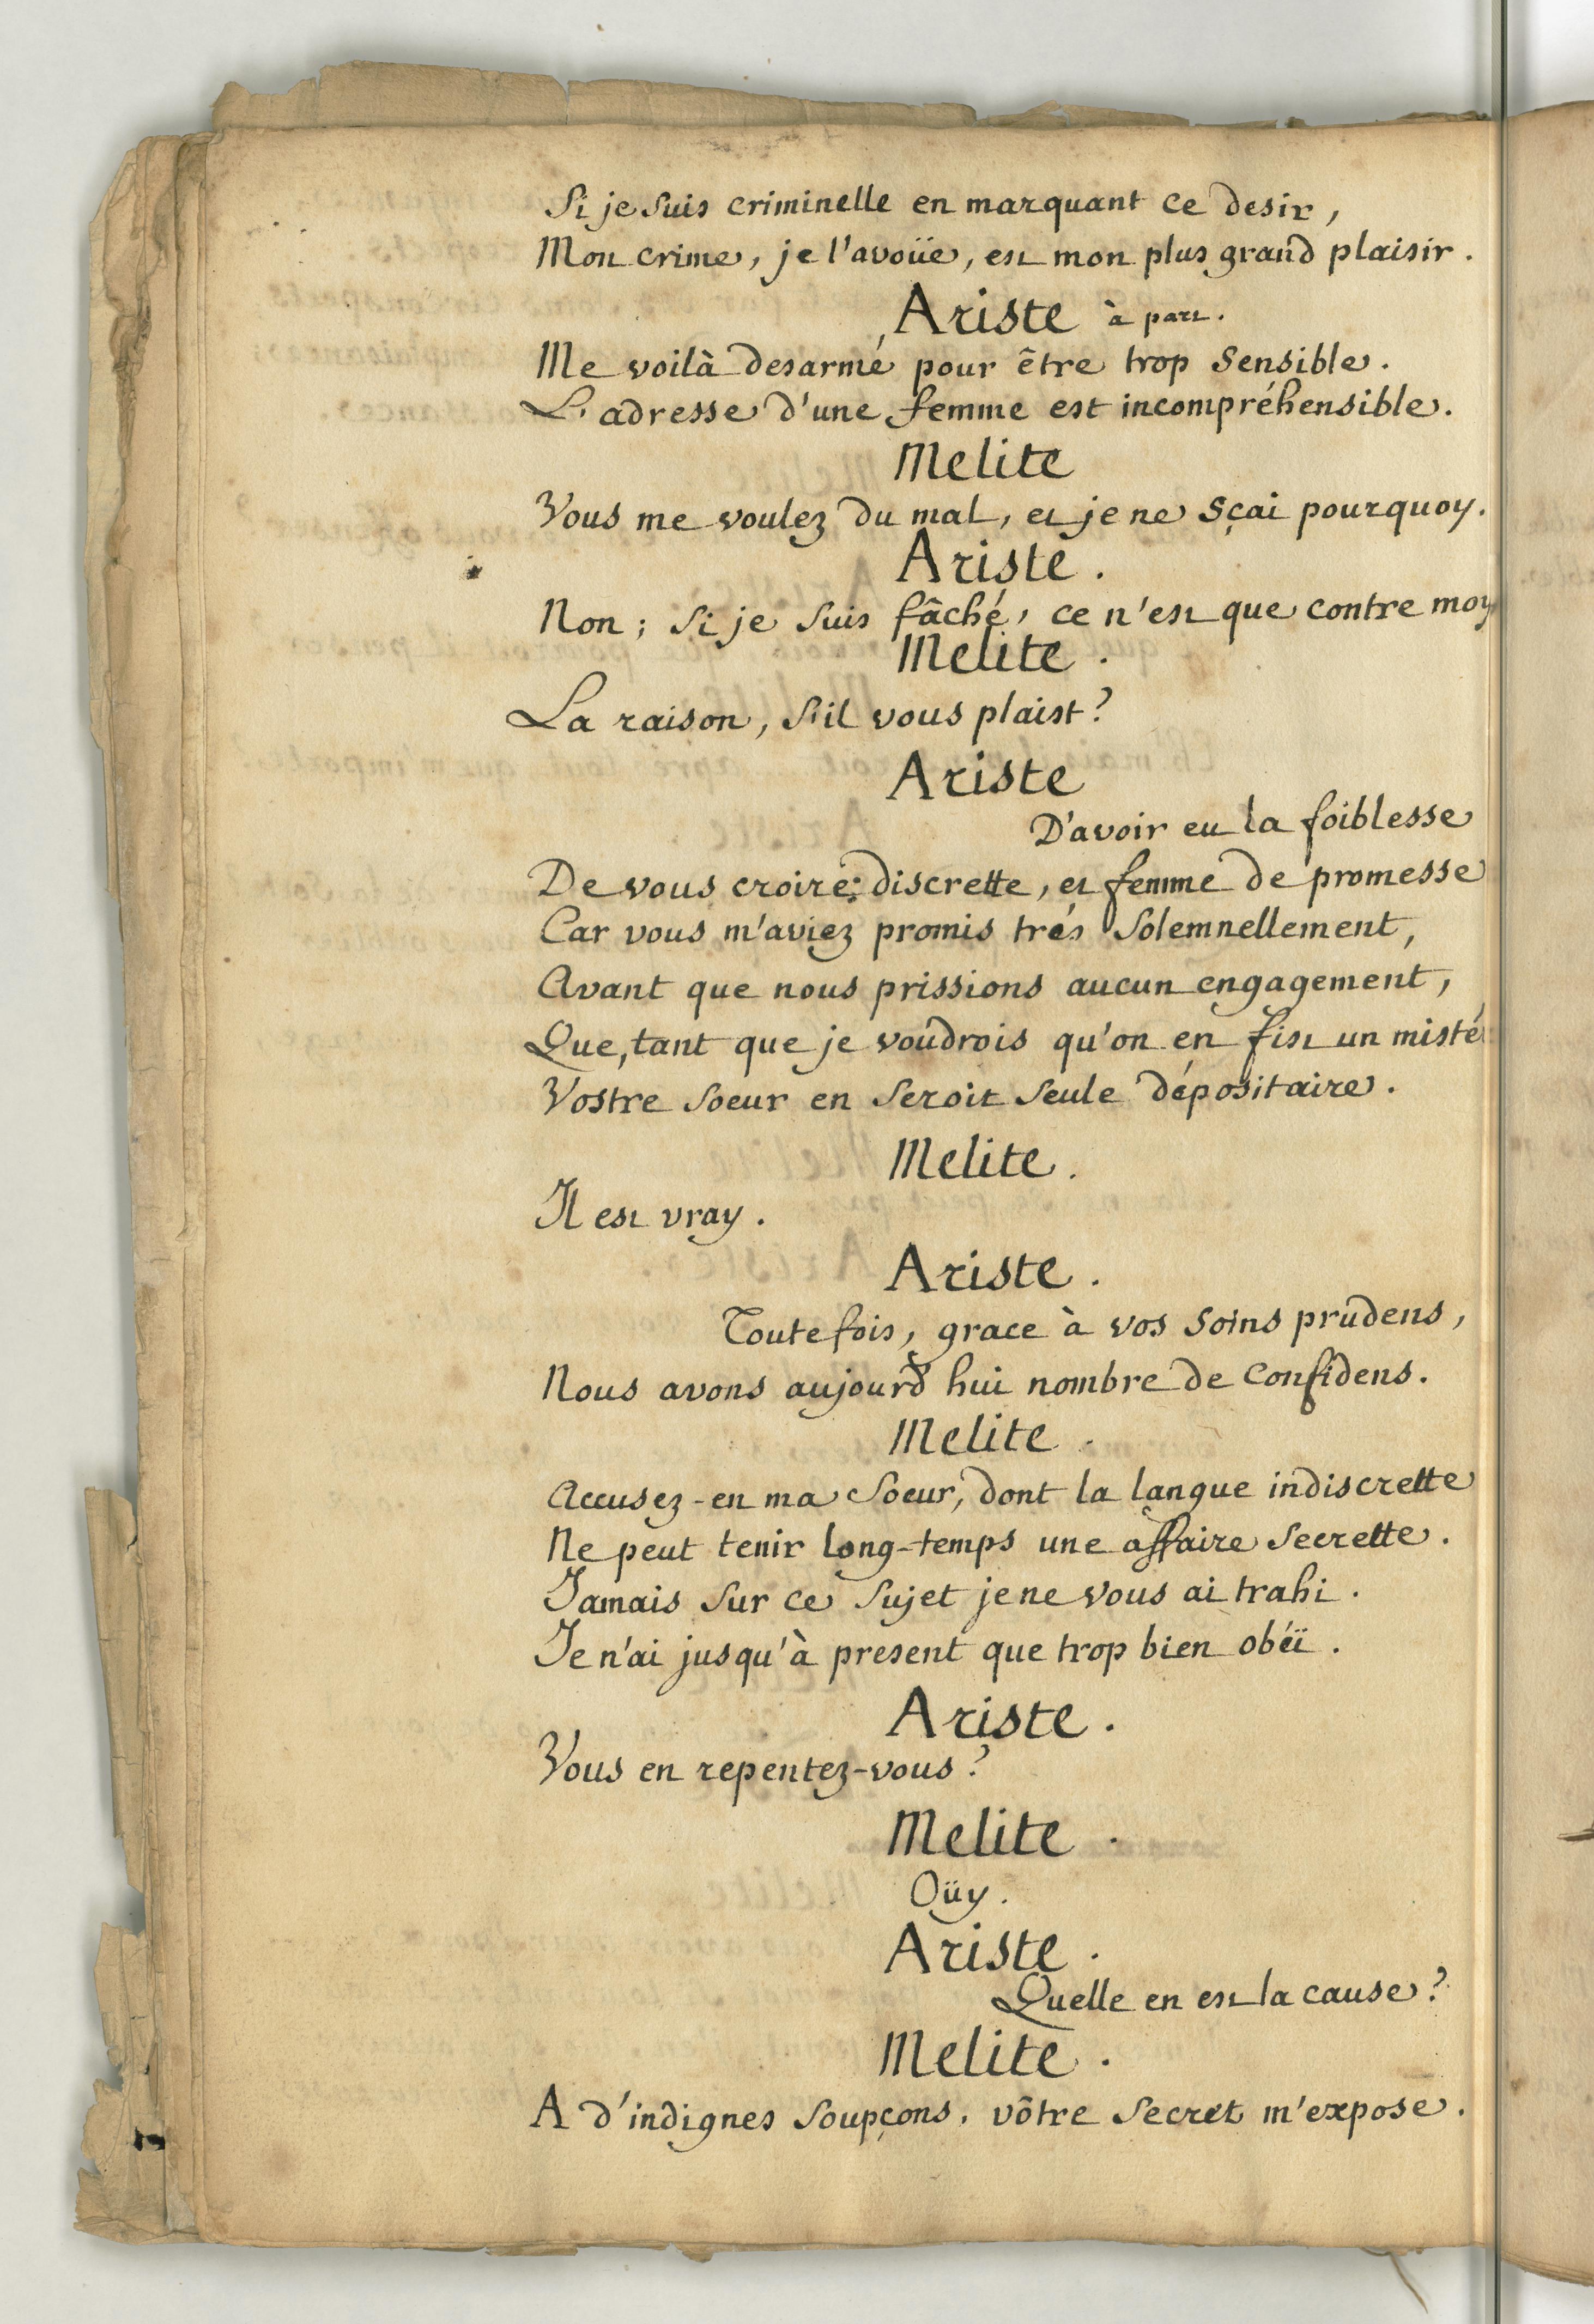 Si je suis criminelle en marquant ce desir,
Mon crime, je l'avoüe, est mon plus grand plaisir.
Ariste à part.
Me voilà desarmé pour être trop sensible.
L'adresse d'une femme est incompréhensible.
Melite
Vous me voulez du mal, et je ne sçai pourquoy.
Ariste.
Non; si je suis fâché, ce n'est que contre moy
Melite.
La raison, s'il vous plaist?
Ariste
D'avoir eu la foiblesse
De vous croire discrette, et femme de promesse
Car vous m'aviez promis trés solemnellement,
Avant que nous prissions aucun engagement,
Que, tant que je voudrois qu'on en fist un misté
Vostre soeur en seroit seule dépositaire.
Melite.
Il est vray.
Ariste.
Toutefois, grace à vos soins prudens,
Nous avons aujourd'hui nombre de confidens.
Melite.
Accusez-en ma soeur, dont la langue indiscrette
Ne peut tenir long-temps une affaire secrette.
Jamais sur ce sujet je ne vous ai trahi.
Je n'ai jusqu'à present que trop bien obéï.
Ariste.
Vous en repentez-vous?
Melite.
Oüy.
Ariste.
Quelle en est la cause?
Melite.
A d'indignes soupçons, vôtre secret m'expose.